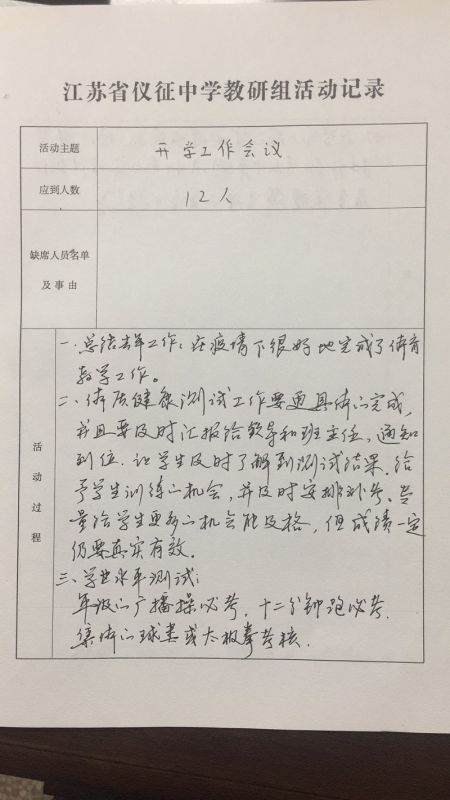 江苏省仪征中学教研组活动记录
活动主题
开学工作会议
应到人数
12人
缺席人员名单
及事由
活动过程
一.总结去年工作:在疫情下很好地完成了体育
教学工作。
二、体质健康测试工作要更具体的完成,
并且要及时汇报给领导和班主任,通知
到位.让学生及时了解到测试结果.给
予学生训练的机会,并及时安排补考.尽
量给学生更多的机会能及格,但成绩一定
仍要真实有效.
三、学业水平测试:
年级的广播操必考,十二分钟跑必考.
集体的球类或太极拳考核.